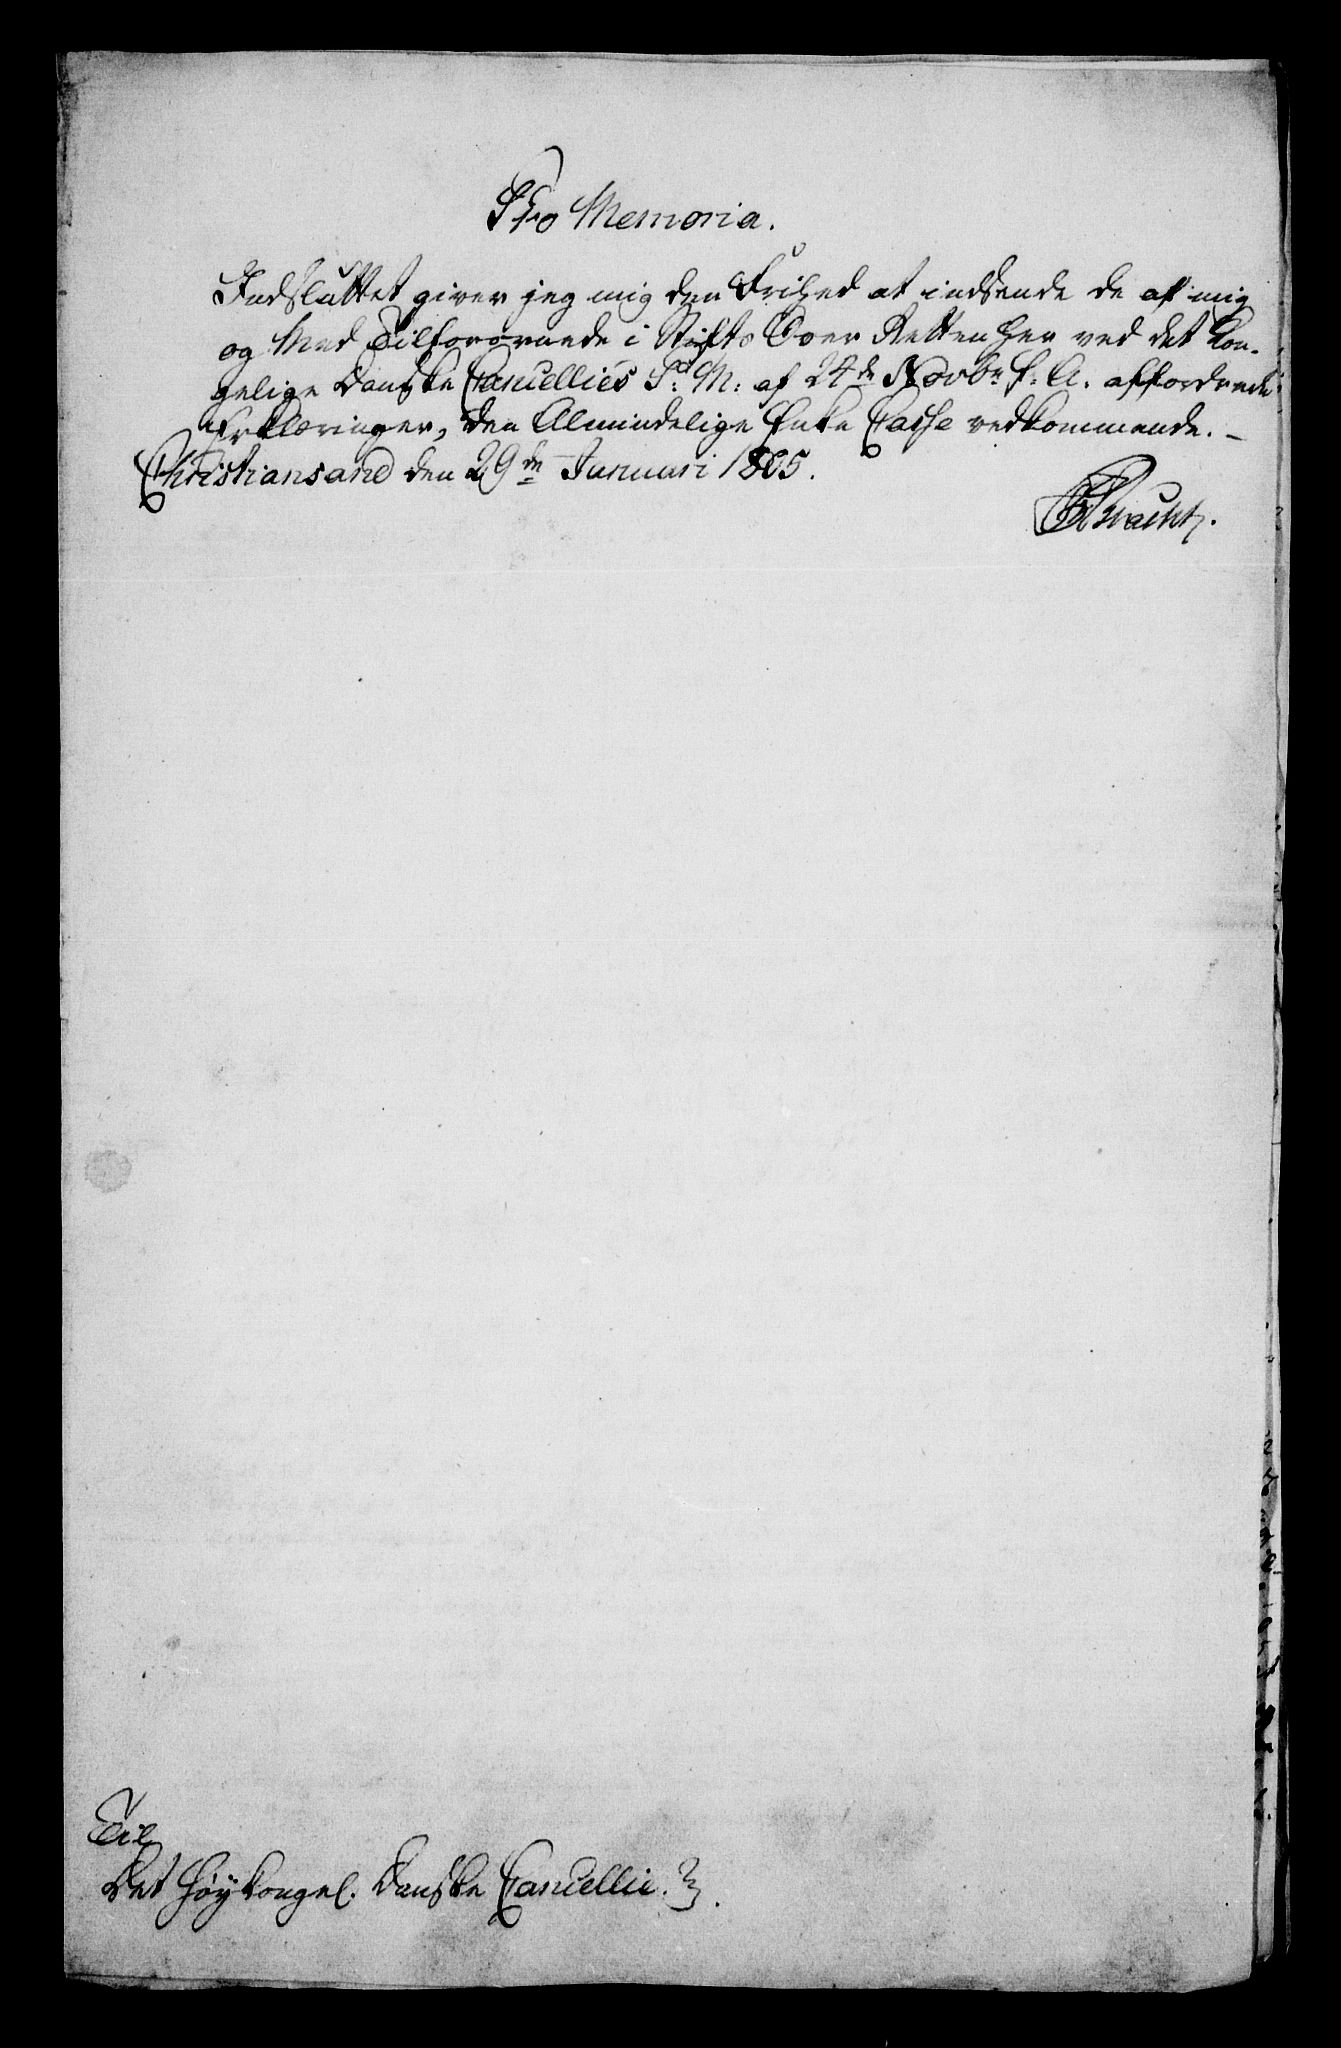 Pro Memoria.
Indsluttet giver jeg mig den Frihed at indsende de af mig
og Med Tilforordnede i Stifts Over Retten her ved det Kon-
gelige Danske Cancellies P. M: af 24de Novbr f. A. affordrede
Erklæringer, den Almindelige Enke Casse vedkommende. –
Christiansand den 29de Januari 1805.
Til
Det høykongel. Danske Cancellie.